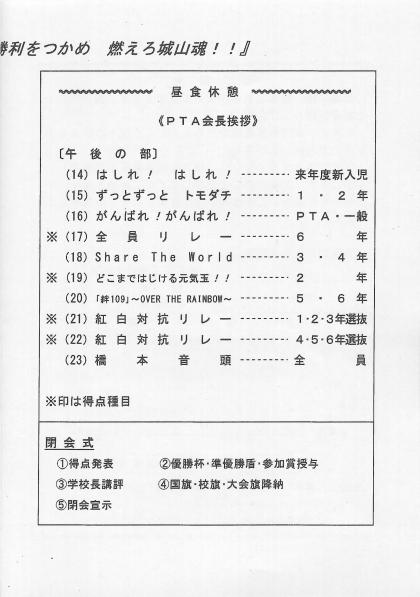 勝利をつかめ　燃えろ城山魂！！』
昼食休憩
《ＰＴＡ会長挨拶》
〔午後の部〕
(14) はしれ！　はしれ！ --------- 来年度新入児
(15) ずっとずっと　トモダチ --------- １・２年
(16) がんばれ！がんばれ！ --------- ＰＴＡ・一般
※ (17) 全員リレー --------- ６年
(18) Share The World --------- ３・４年
※ (19) どこまではじける元気玉！！ --------- ２年
(20) 「絆109」～OVER THE RAINBOW～ --------- ５・６年
※ (21) 紅白対抗リレー --------- 1・2・3年選抜
※ (22) 紅白対抗リレー --------- 4・5・6年選抜
(23) 橋本音頭 --------- 全員
※印は得点種目
閉会式
①得点発表　②優勝杯・準優勝盾・参加賞授与
③学校長講評　④国旗・校旗・大会旗降納
⑤閉会宣示